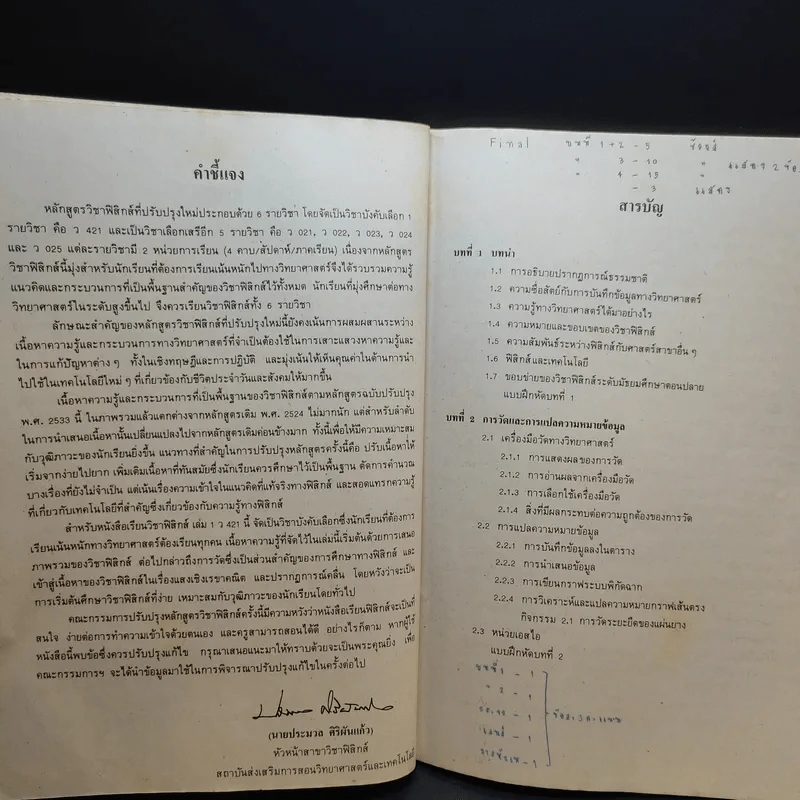 คำชี้แจง
หลักสูตรวิชาฟิสิกส์ที่ปรับปรุงใหม่ประกอบด้วย 6 รายวิชา โดยจัดเป็นวิชาบังคับเลือก 1
รายวิชา คือ ว 421 และเป็นวิชาเลือกเสรีอีก 5 รายวิชา คือ ว 021, ว 022, ว 023, ว 024
และ ว 025 แต่ละรายวิชามี 2 หน่วยการเรียน (4 คาบ/สัปดาห์/ภาคเรียน) เนื่องจากหลักสูตร
วิชาฟิสิกส์นี้มุ่งสำหรับนักเรียนที่ต้องการเรียนเน้นหนักไปทางวิทยาศาสตร์จึงได้รวบรวมความรู้
แนวคิดและกระบวนการที่เป็นพื้นฐานสำคัญของวิชาฟิสิกส์ไว้ทั้งหมด นักเรียนที่มุ่งศึกษาต่อทาง
วิทยาศาสตร์ในระดับสูงขึ้นไป จึงควรเรียนวิชาฟิสิกส์ทั้ง 6 รายวิชา
ลักษณะสำคัญของหลักสูตรวิชาฟิสิกส์ที่ปรับปรุงใหม่นี้ยังคงเน้นการผสมผสานระหว่าง
เนื้อหาความรู้และกระบวนการทางวิทยาศาสตร์ที่จำเป็นต้องใช้ในการเสาะแสวงหาความรู้และ
ในการแก้ปัญหาต่าง ๆ ทั้งในเชิงทฤษฎีและการปฏิบัติ และมุ่งเน้นให้เห็นคุณค่าในด้านการนำ
ไปใช้ในเทคโนโลยีใหม่ ๆ ที่เกี่ยวข้องกับชีวิตประจำวันและสังคมให้มากขึ้น
เนื้อหาความรู้และกระบวนการที่เป็นพื้นฐานของวิชาฟิสิกส์ตามหลักสูตรฉบับปรับปรุง
พ.ศ. 2533 นี้ ในภาพรวมแล้วแตกต่างจากหลักสูตรเดิม พ.ศ. 2524 ไม่มากนัก แต่สำหรับลำดับ
ในการนำเสนอเนื้อหานั้นเปลี่ยนแปลงไปจากหลักสูตรเดิมค่อนข้างมาก ทั้งนี้เพื่อให้มีความเหมาะสม
กับวุฒิภาวะของนักเรียนยิ่งขึ้น แนวทางที่สำคัญในการปรับปรุงหลักสูตรครั้งนี้คือ ปรับเนื้อหาให้
เริ่มจากง่ายไปยาก เพิ่มเติมเนื้อหาที่ทันสมัยซึ่งนักเรียนควรศึกษาไว้เป็นพื้นฐาน ตัดการคำนวณ
บางเรื่องที่ยังไม่จำเป็น แต่เน้นเรื่องความเข้าใจในแนวคิดที่แท้จริงทางฟิสิกส์ และสอดแทรกความรู้
ที่เกี่ยวกับเทคโนโลยีที่สำคัญซึ่งเกี่ยวข้องกับความรู้ทางฟิสิกส์
สำหรับหนังสือเรียนวิชาฟิสิกส์ เล่ม 1 ว 421 นี้ จัดเป็นวิชาบังคับเลือกซึ่งนักเรียนที่ต้องการ
เรียนเน้นหนักทางวิทยาศาสตร์ต้องเรียนทุกคน เนื้อหาความรู้ที่จัดไว้ในเล่มนี้เริ่มต้นด้วยการเสนอ
ภาพรวมของวิชาฟิสิกส์ ต่อไปกล่าวถึงการวัดซึ่งเป็นส่วนสำคัญของการศึกษาทางฟิสิกส์ และ
เข้าสู่เนื้อหาของวิชาฟิสิกส์ในเรื่องแสงเชิงเรขาคณิต และปรากฏการณ์คลื่น โดยหวังว่าจะเป็น
การเริ่มต้นศึกษาวิชาฟิสิกส์ที่ง่าย เหมาะสมกับวุฒิภาวะของนักเรียนโดยทั่วไป
คณะกรรมการปรับปรุงหลักสูตรวิชาฟิสิกส์ครั้งนี้มีความหวังว่าหนังสือเรียนฟิสิกส์จะเป็นที่
สนใจ ง่ายต่อการทำความเข้าใจด้วยตนเอง และครูสามารถสอนได้ดี อย่างไรก็ตาม หากผู้ใช้
หนังสือนี้พบข้อซึ่งควรปรับปรุงแก้ไข กรุณาเสนอแนะมาให้ทราบด้วยจะเป็นพระคุณยิ่ง เพื่อ
คณะกรรมการฯ จะได้นำข้อมูลมาใช้ในการพิจารณาปรับปรุงแก้ไขในครั้งต่อไป
(นายประมวล ศิริผันแก้ว)
หัวหน้าสาขาวิชาฟิสิกส์
สถาบันส่งเสริมการสอนวิทยาศาสตร์และเทคโนโลยี
Final บทที่ 1+2 - 5
" 3 - 10 "
" 4 - 15 "
- 3
สารบัญ
บทที่ 1 บทนำ
1.1 การอธิบายปรากฏการณ์ธรรมชาติ
1.2 ความซื่อสัตย์กับการบันทึกข้อมูลทางวิทยาศาสตร์
1.3 ความรู้ทางวิทยาศาสตร์ได้มาอย่างไร
1.4 ความหมายและขอบเขตของวิชาฟิสิกส์
1.5 ความสัมพันธ์ระหว่างฟิสิกส์กับศาสตร์สาขาอื่น ๆ
1.6 ฟิสิกส์และเทคโนโลยี
1.7 ขอบข่ายของวิชาฟิสิกส์ระดับมัธยมศึกษาตอนปลาย
แบบฝึกหัดบทที่ 1
บทที่ 2 การวัดและการแปลความหมายข้อมูล
2.1 เครื่องมือวัดทางวิทยาศาสตร์
2.1.1 การแสดงผลของการวัด
2.1.2 การอ่านผลจากเครื่องมือวัด
2.1.3 การเลือกใช้เครื่องมือวัด
2.1.4 สิ่งที่มีผลกระทบต่อความถูกต้องของการวัด
2.2 การแปลความหมายข้อมูล
2.2.1 การบันทึกข้อมูลลงในตาราง
2.2.2 การนำเสนอข้อมูล
2.2.3 การเขียนกราฟระบบพิกัดฉาก
2.2.4 การวิเคราะห์และแปลความหมายกราฟเส้นตรง
กิจกรรม 2.1 การวัดระยะยืดของแผ่นยาง
2.3 หน่วยเอสไอ
แบบฝึกหัดบทที่ 2
บทที่ 1 - 1
" 2 - 1
- 1
- 1
- 1